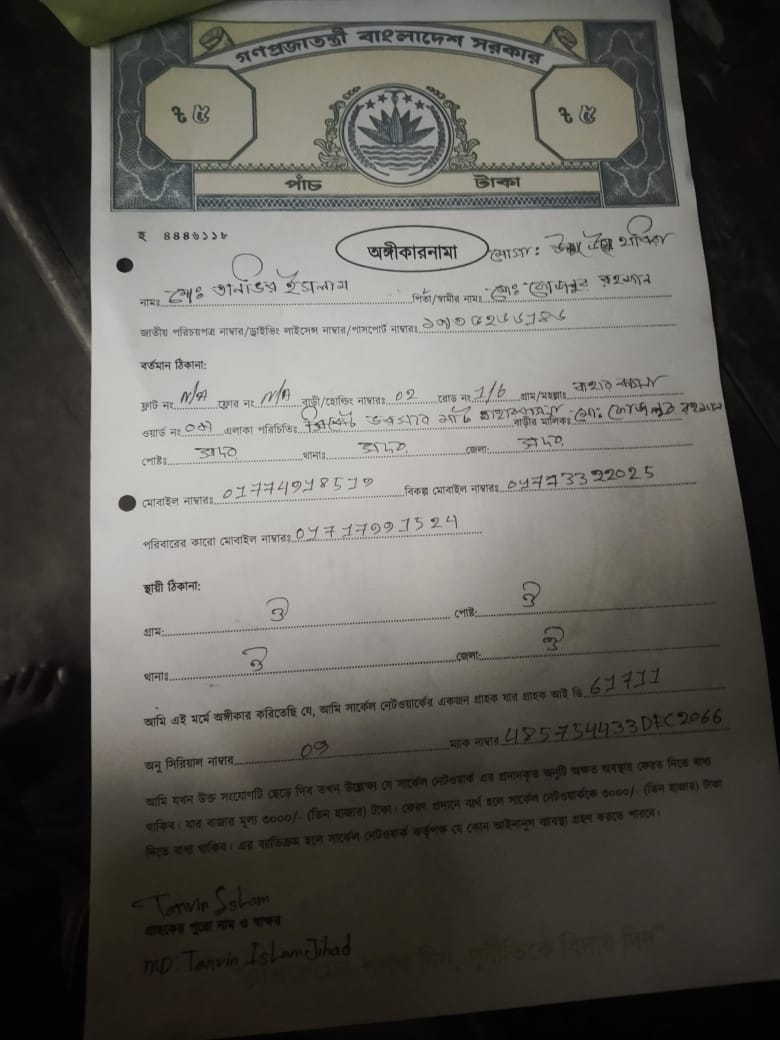 গণপ্রজাতন্ত্রী বাংলাদেশ সরকার
৳ ৫ ৳ ৫
পাঁচ টাকা
হ ৪৪৪৬১১৮
অঙ্গীকারনামা
নামঃ মোঃ তানভির ইসলাম পিতা/স্বামীর নামঃ মোঃ রহমান
জাতীয় পরিচয়পত্র নাম্বার/ড্রাইভিং লাইসেন্স নাম্বার/পাসপোর্ট নাম্বারঃ
বর্তমান ঠিকানা:
ফ্লাট নং N/A ফ্লোর নং N/A বাড়ী/হোল্ডিং নাম্বারঃ 02 রোড নং 1/6 গ্রাম/মহল্লাঃ
ওয়ার্ড নং এলাকা পরিচিতিঃ বাড়ীর মালিকঃ মোঃ রহমান
পোষ্টঃ থানাঃ জেলা:
মোবাইল নাম্বারঃ 01774918519 বিকল্প মোবাইল নাম্বারঃ 01773322025
পরিবারের কারো মোবাইল নাম্বারঃ 01717991524
স্থায়ী ঠিকানা:
গ্রাম: ঐ পোষ্ট: ঐ
থানাঃ ঐ জেলা: ঐ
আমি এই মর্মে অঙ্গীকার করিতেছি যে, আমি সার্কেল নেটওয়ার্কের একজন গ্রাহক যার গ্রাহক আই ডি 61711
অনু সিরিয়াল নাম্বার 09 ম্যাক নাম্বার 485754433DEC2066
আমি যখন উক্ত সংযোগটি ছেড়ে দিব তখন উল্লেক্ষ্য যে সার্কেল নেটওয়ার্ক এর প্রদানকৃত অনুটি অক্ষত অবস্থায় ফেরত দিতে বাধ্য
থাকিব। যার বাজার মূল্য ৩০০০/- (তিন হাজার) টাকা। ফেরৎ প্রদানে ব্যর্থ হলে সার্কেল নেটওয়ার্ককে ৩০০০/- (তিন হাজার) টাকা
দিতে বাধ্য থাকিব। এর ব্যতিক্রম হলে সার্কেল নেটওয়ার্ক কর্তৃপক্ষ যে কোন আইনানুগ ব্যবস্থা গ্রহণ করতে পারবে।
Tanvin Islam
গ্রাহকের পুরো নাম ও স্বাক্ষর
MD: Tanvin Islam Jihad
দিন, দূর্নীতিকে বিদায় দিন"